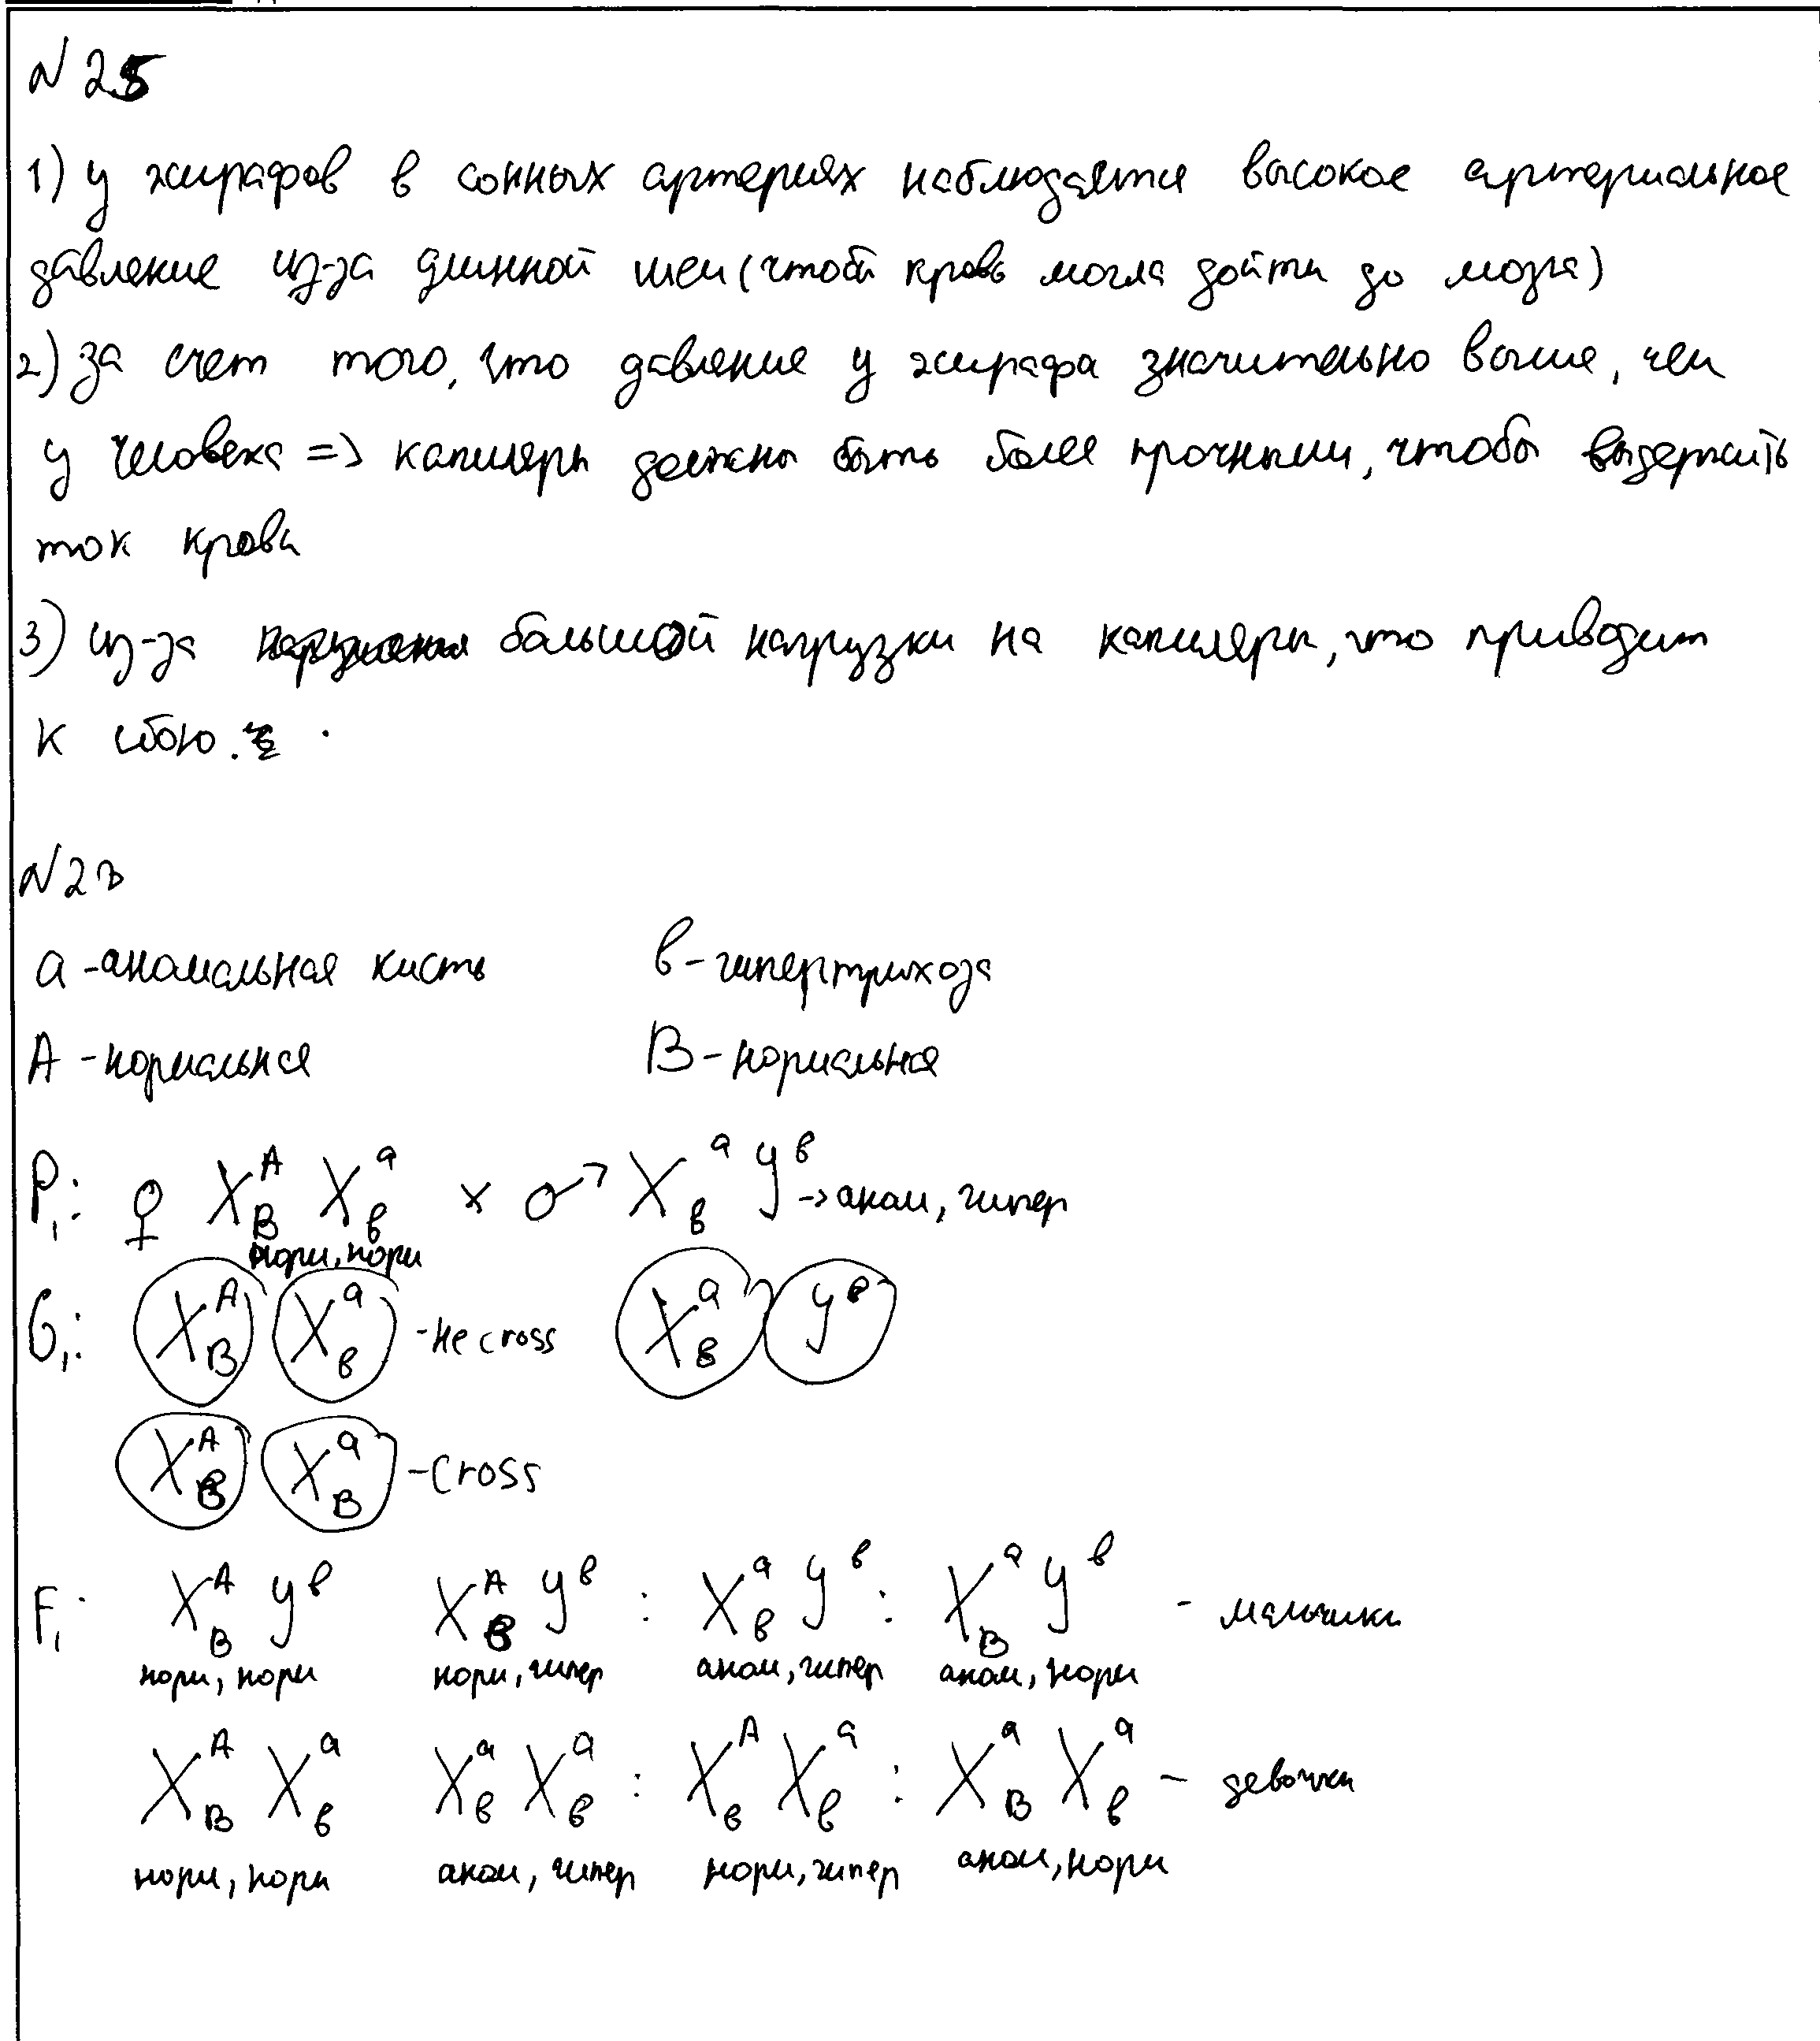 №25
1) у жирафов в сонных артериях наблюдается высокое артериальное
давление из-за длинной шеи (чтоб кровь могла дойти до мозга)
2) за счет того, что давление у жирафа значительно выше, чем
у человека => капиляры должны быть более прочными, чтобы выдержить
ток крови
3) из-за большой нагрузки на капиляры, что приводит
к сбою.
№2
а - аномальная кисть в - гипертрихоза
А - нормальная В - нормальная
P₁: ♀ X^A_B X^a_в × ♂ X^a_в У^в -> аном, гипер
норм, норм
G₁: X^A_B X^a_в - не cross X^a_в У^в
X^A_в X^a_B - cross
F₁: X^A_B У^в X^A_в У^в : X^a_в У^в : X^a_B У^в - мальчики
норм, норм норм, гипер аном, гипер аном, норм
X^A_B X^a_в X^a_в X^a_в : X^A_в X^a_в : X^a_B X^a_в - девочки
норм, норм аном, гипер норм, гипер аном, норм